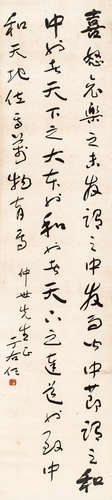 喜怒哀樂之未發謂之中發而皆中節謂之和
中也者天下之大本也和也者天下之達道也致中
和天地位焉萬物育焉
仲世先生正
于右任